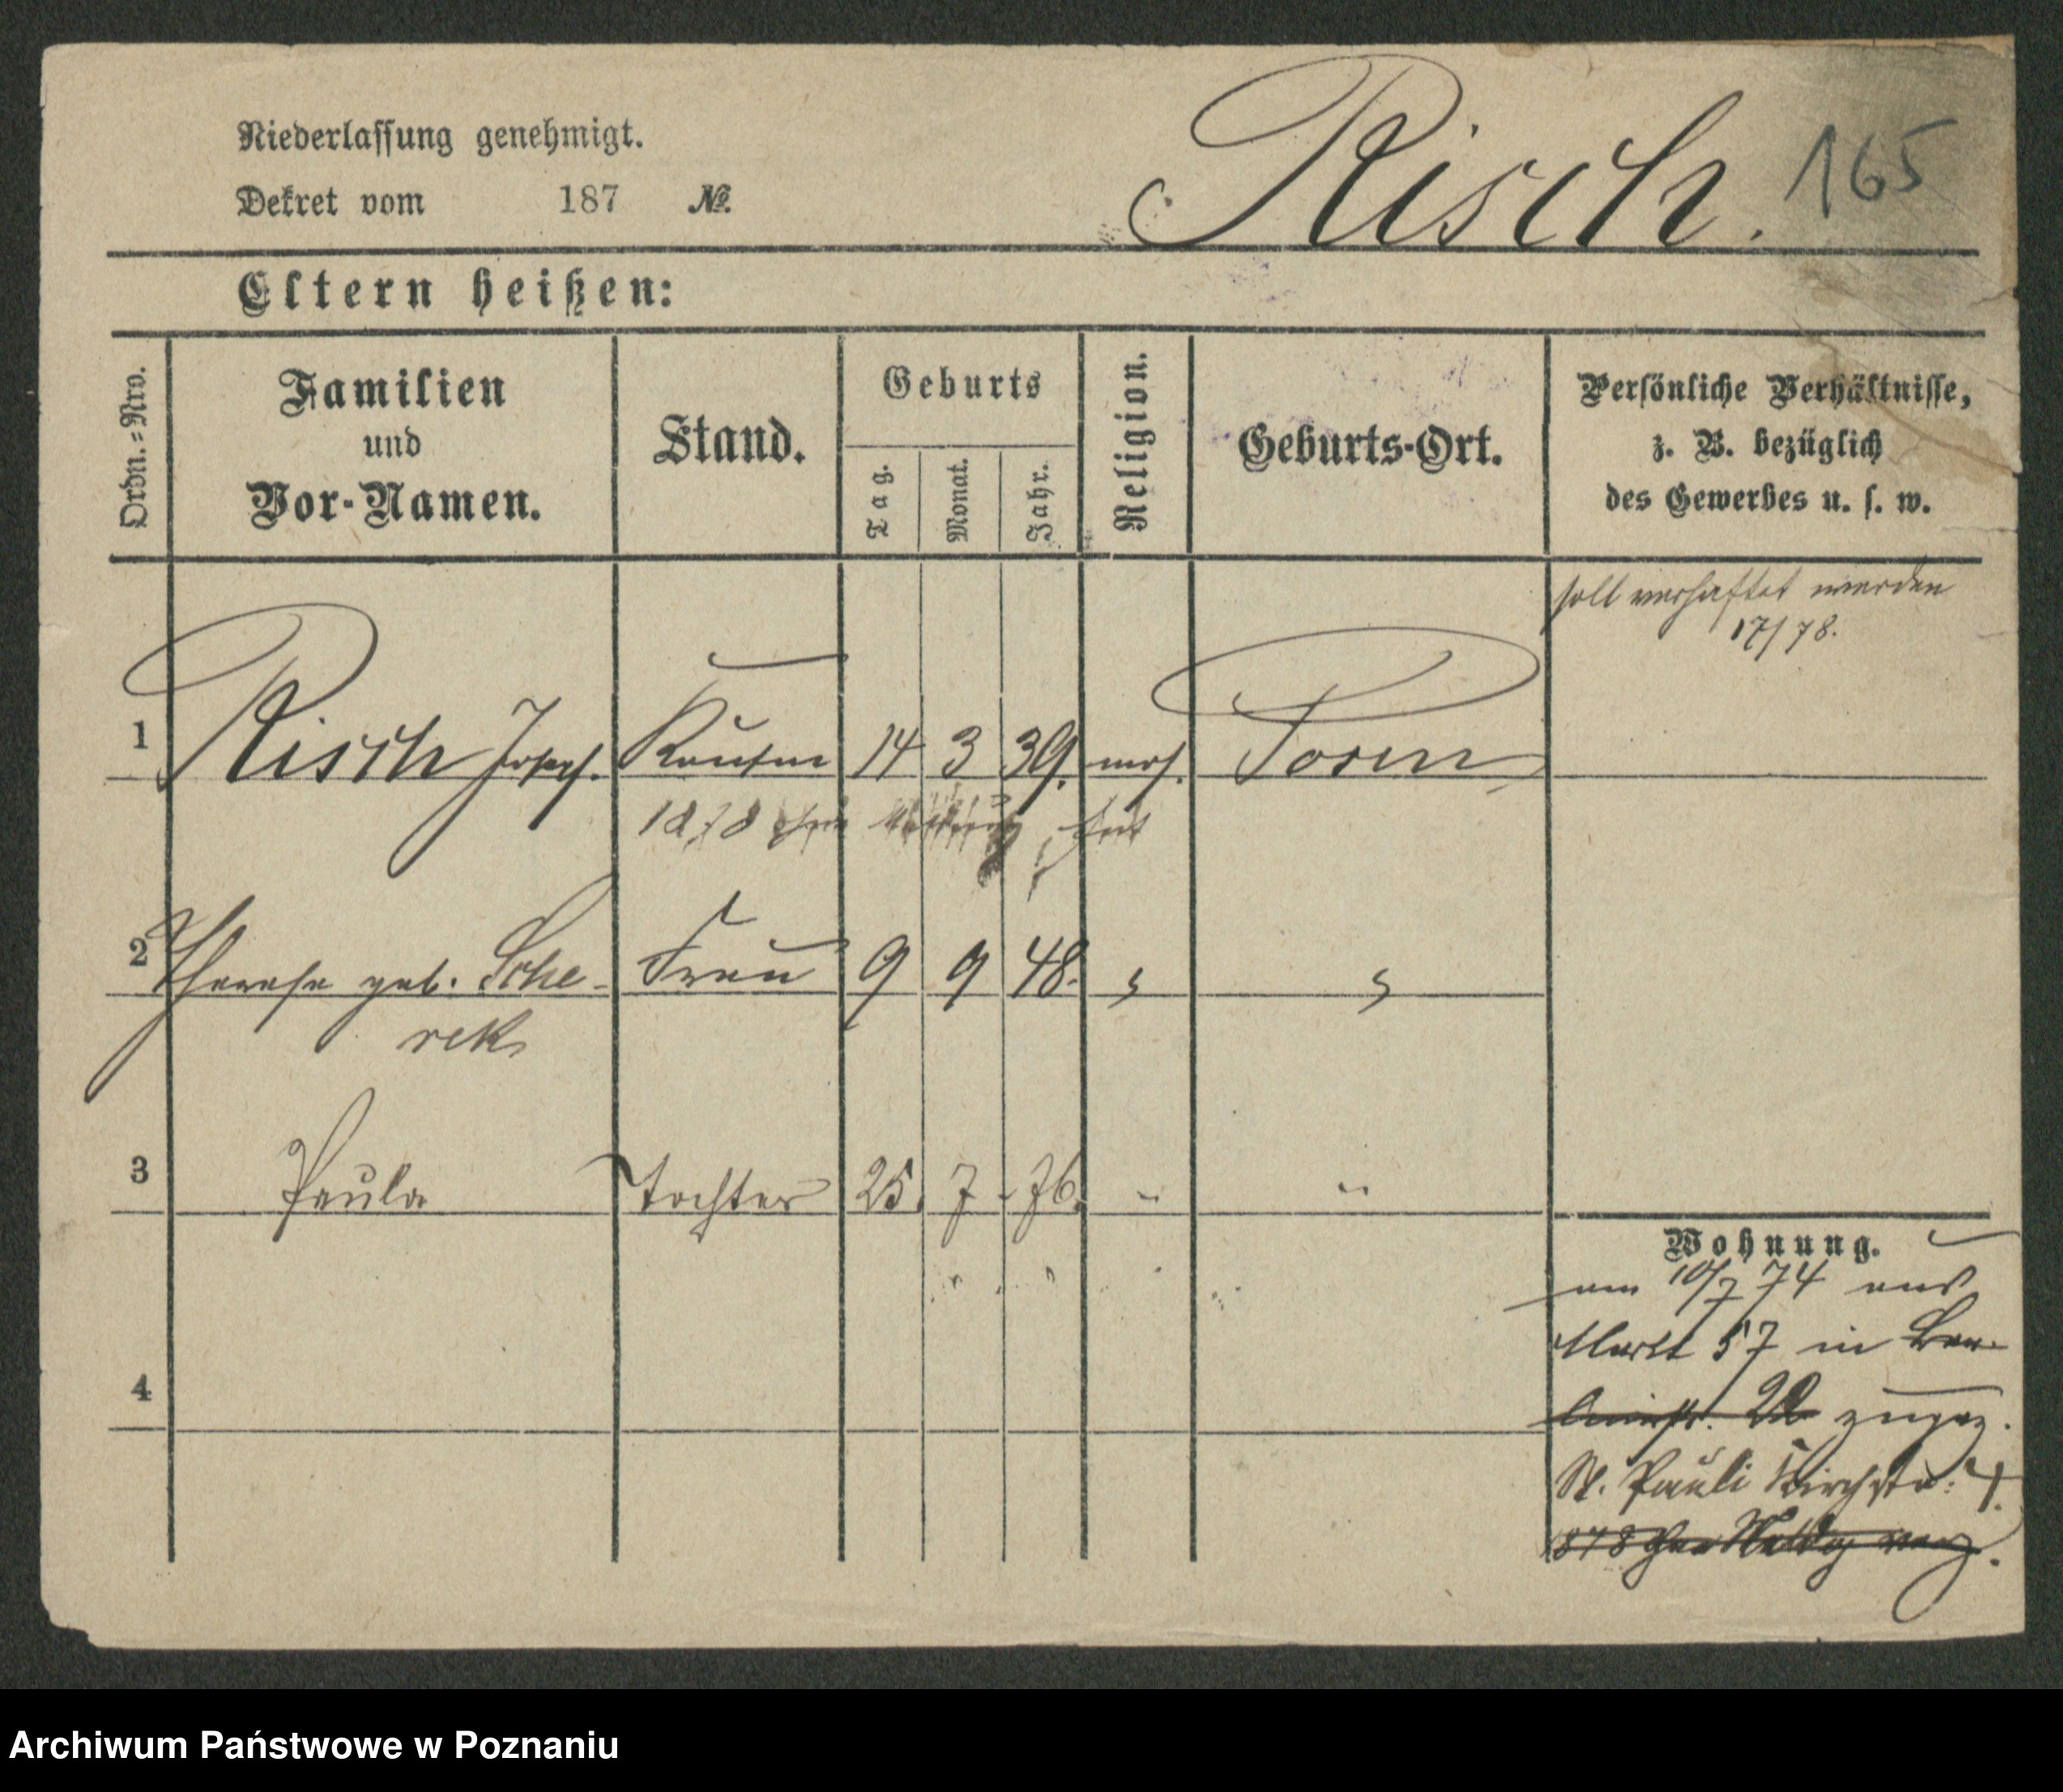 Niederlassung genehmigt.
Dekret vom 187 №.
Risch. 165
Eltern heißen:
Ordn.-Nro.
Familien
und
Vor-Namen.
Stand.
Geburts
Tag.
Monat.
Jahr.
Religion.
Geburts-Ort.
Persönliche Verhältnisse,
z. B. bezüglich
des Gewerbes u. s. w.
soll verhaftet werden
17/78.
1 Risch Josef. Kaufm 14 3 39. mos. Posen
1878
2 Therese geb. Sche- Frau 9 9 48. " "
rek
3 Paula Tochter 25. 7 - 76. " "
4
Wohnung.
am 10/7 74 aus
Markt 57 in
zugez.
St. Pauli Kirchstr. 4.
878 ohne Meldg verz.
Archiwum Państwowe w Poznaniu